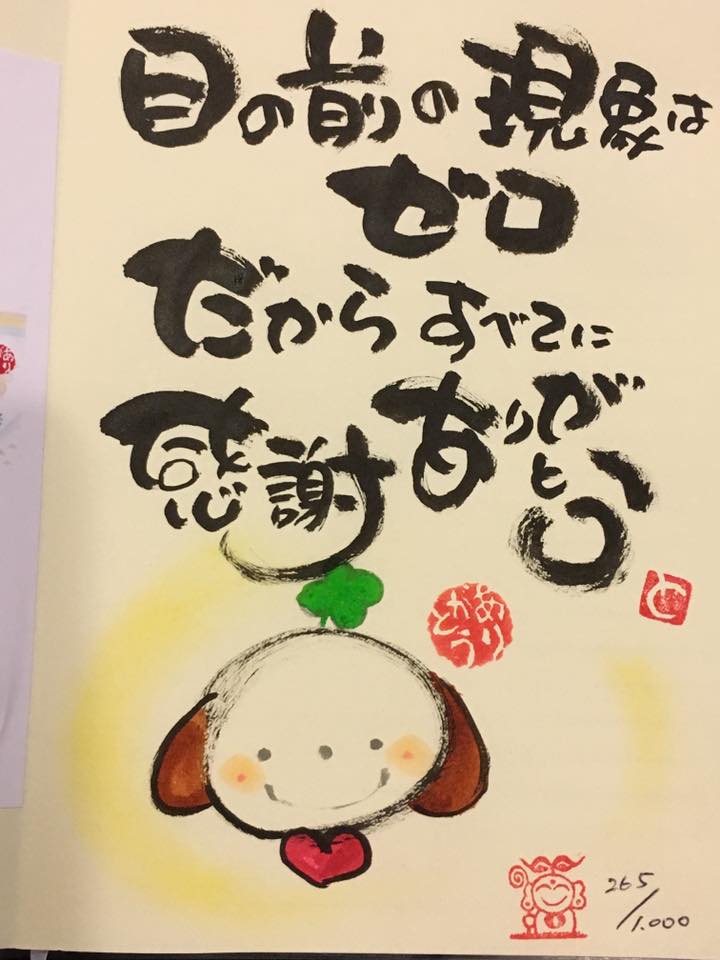 目の前の現象は
ゼロ
だからすべてに
感謝ありがとう
ありがとう
と
265/1.000